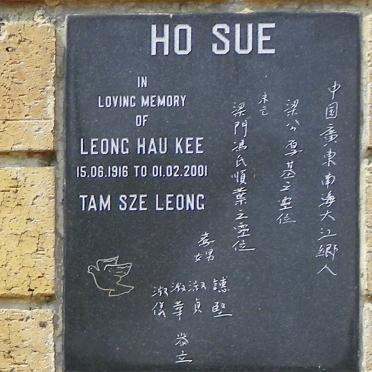 HO SUE
IN
LOVING MEMORY
OF
LEONG HAU KEE
15.06.1916 TO 01.02.2001
TAM SZE LEONG
中国廣東南海大江鄉人
梁公厚基之灵位
未亡
梁門馮氏順葉之靈位
孝男女
謙堅
淑貞
淑華
淑儀
恭立